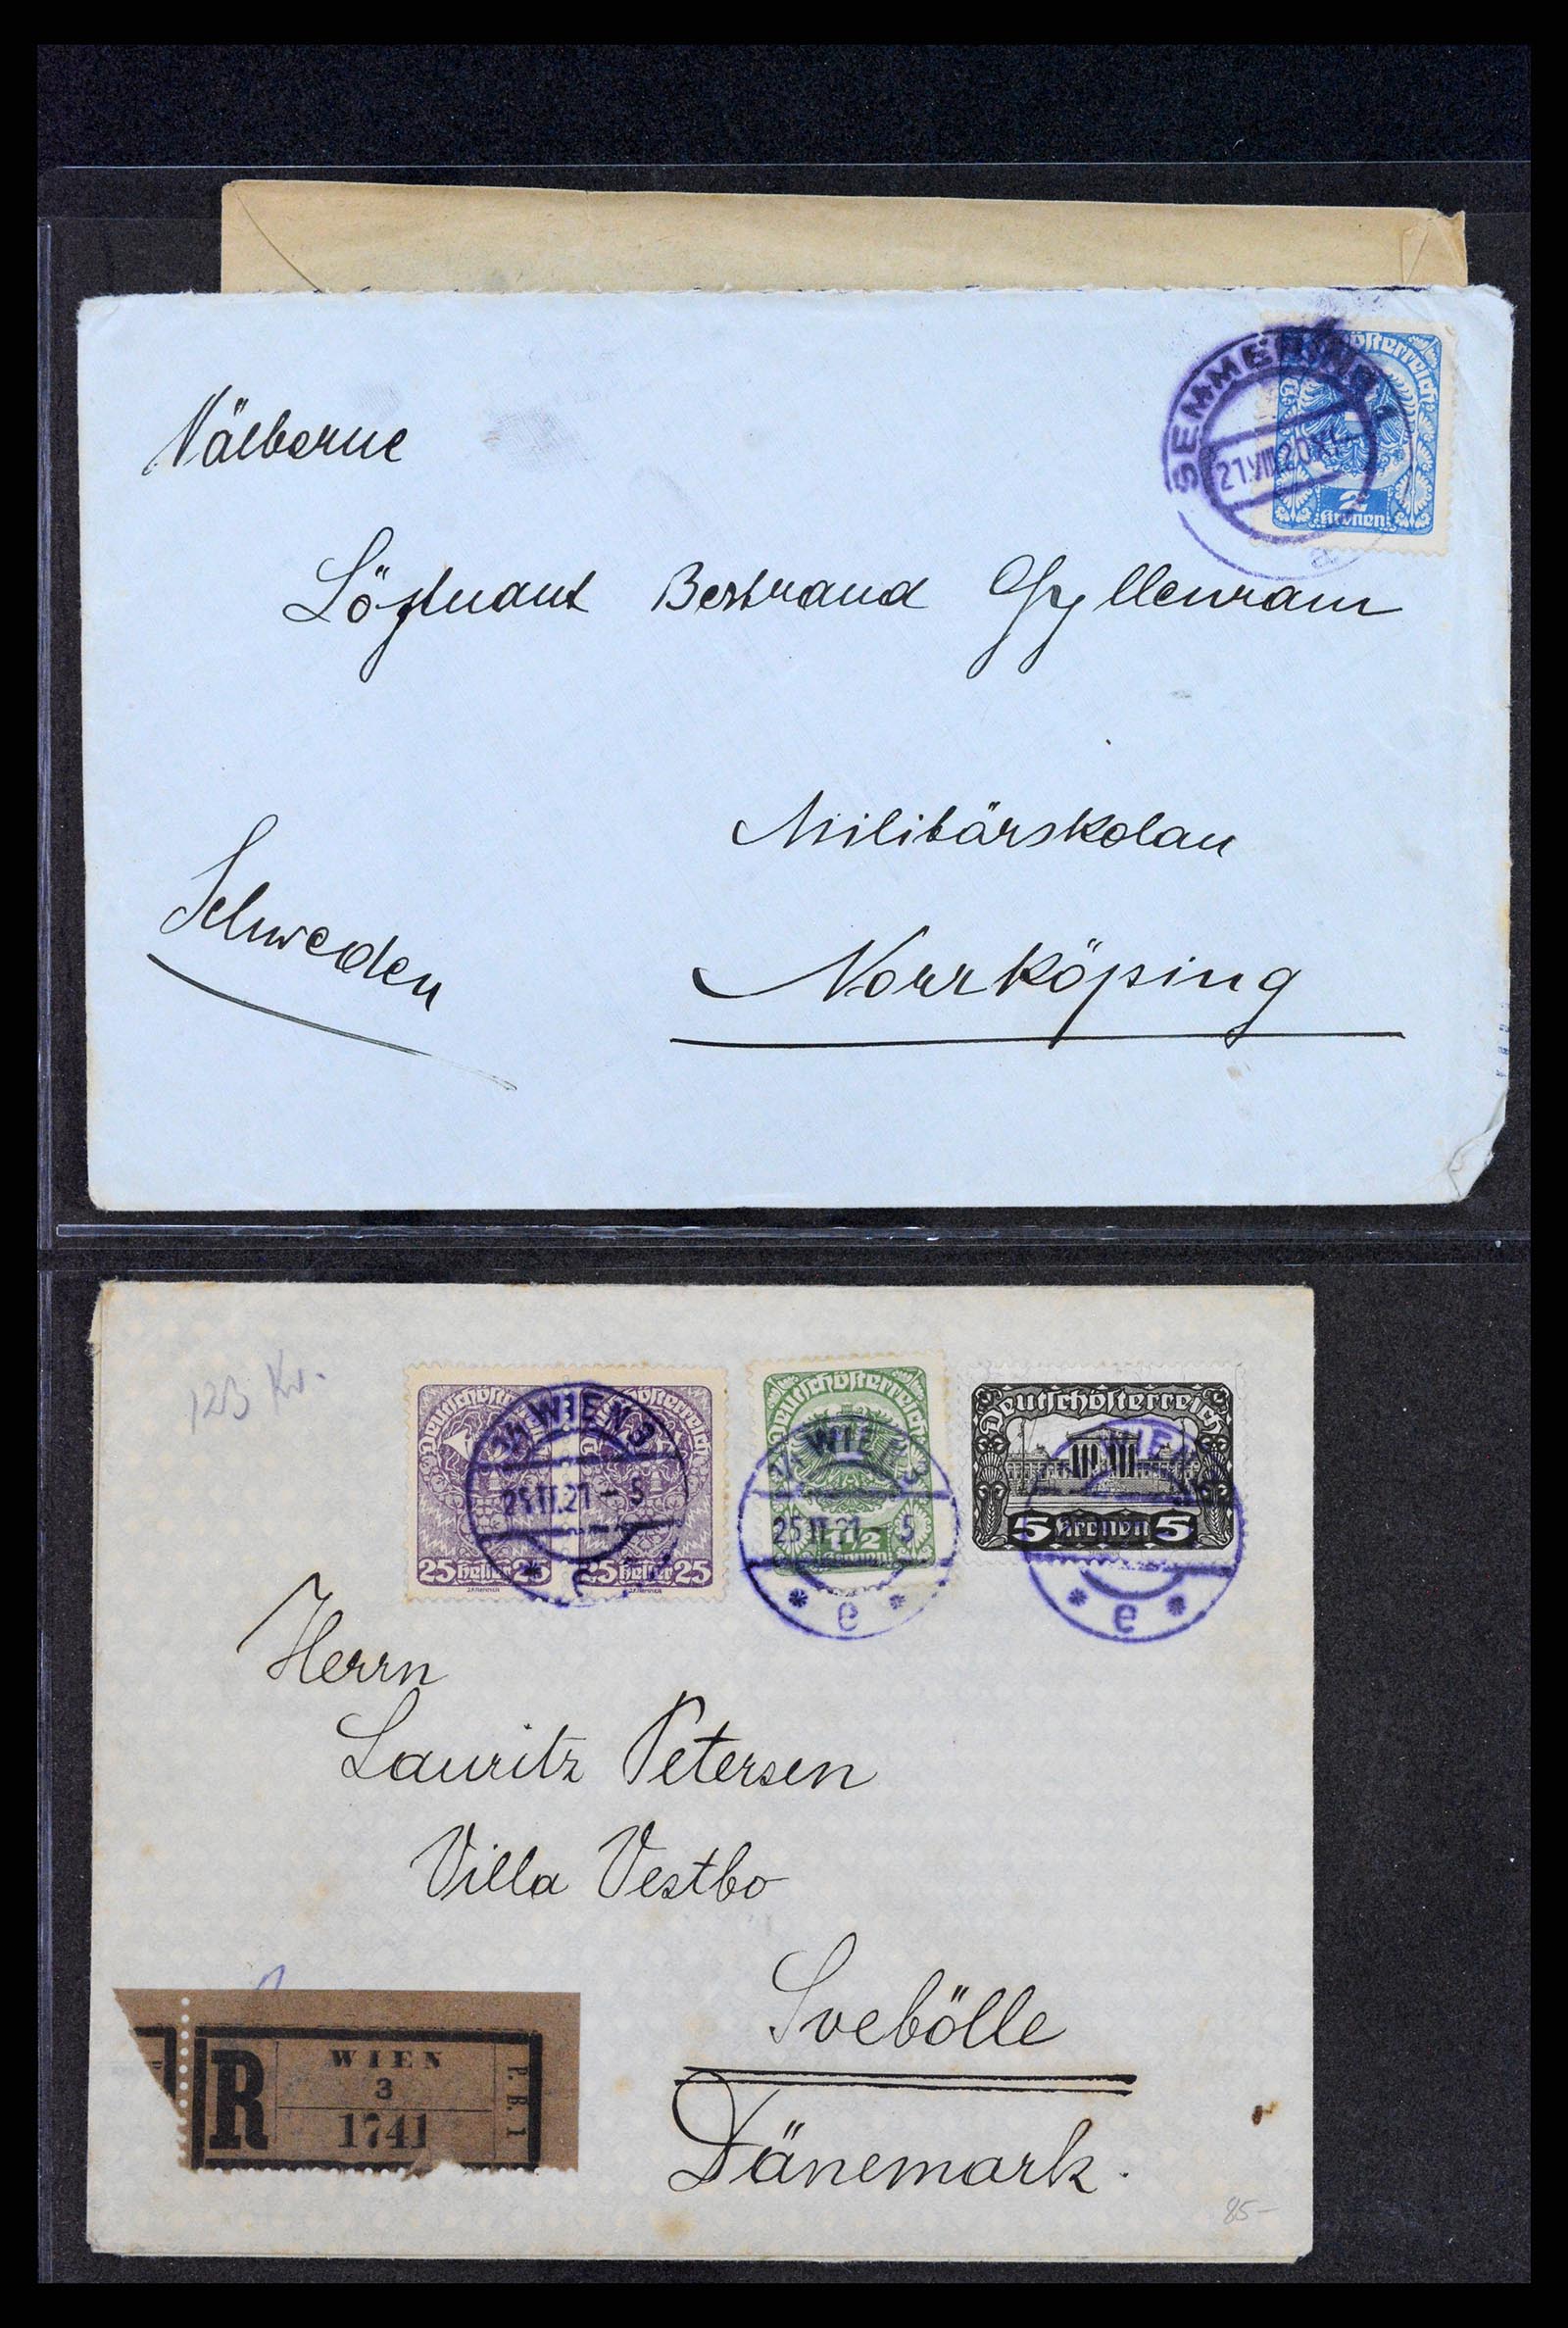 Deutschösterreich
2
Kronen
SEMMERING 1
21.VIII.20.XI
a
Välborne
Löjtnant Bertrand Gyllenram
Militärskolan
Schweden
Norrköping
123 Kr.
Deutschösterreich
25 heller 25
25 heller 25
WIEN 3
25.II.21 - 5
e
Deutschösterreich
1 1/2
Kronen
WIEN 3
25.II.21 - 5
* e *
Deutschösterreich
5 Kronen 5
WIEN
* e *
Herrn
Lauritz Petersen
Villa Vestbo
Svebölle
Dänemark.
R
WIEN
3
1741
P. B. 1
85-